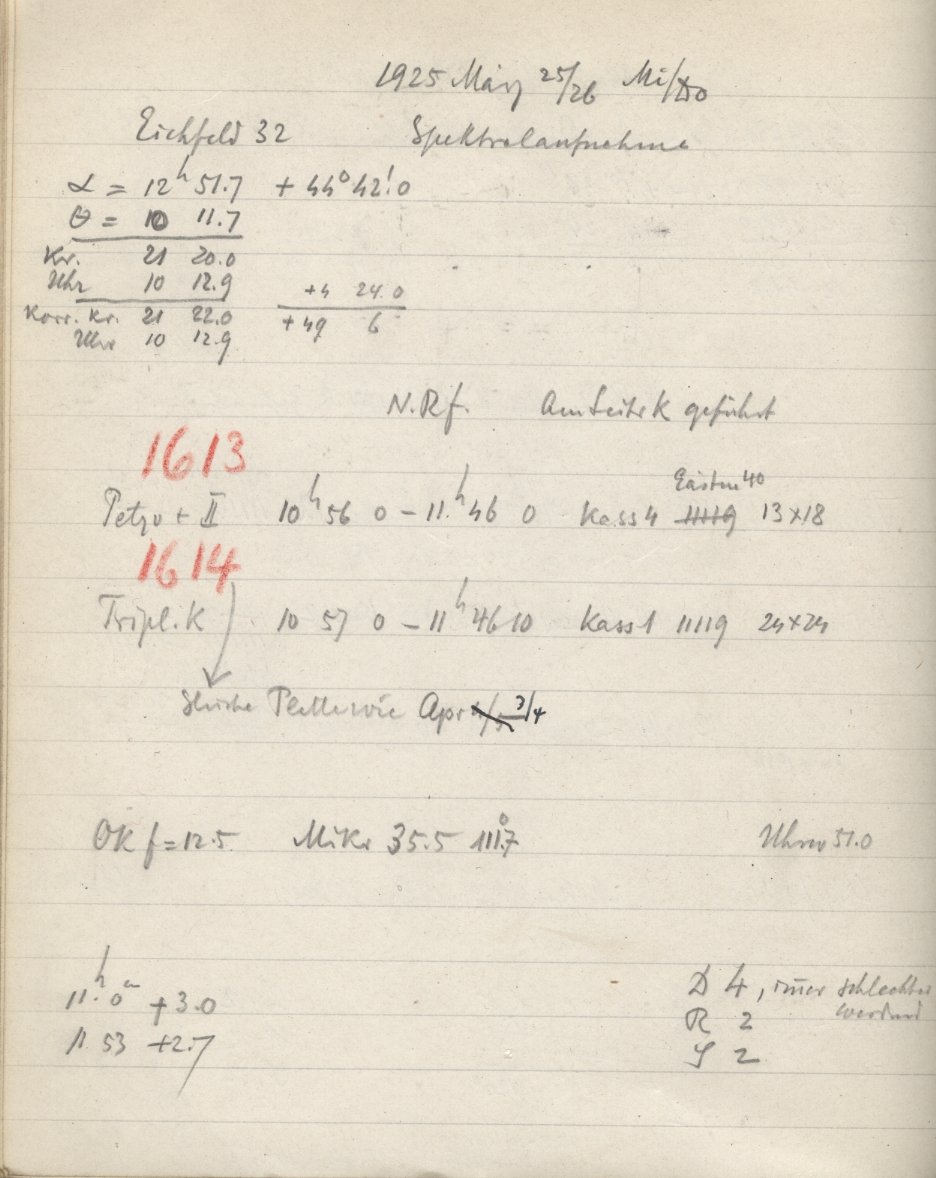 1925 März 25/26 Mi/Do
Eichfeld 32 Spektralaufnahme
α = 12h 51.7 + 44° 42!0
θ = 10 11.7
Kr. 21 20.0
Uhr 10 12.9 +4 24.0
Korr. Kr. 21 22.0 +49 6
Uhr 10 12.9
N.Rf. Am Leitr K geführt
1613
Eastm 40
Petzv + II 10h 56 0 – 11h 46 0 Kass 4 11119 13×18
1614
Tripl. K 10 57 0 – 11h 46 10 Kass 1 11119 24×24
Gleiche Platte wie Apr 3/4
OK f = 12.5 Mikr 35.5 111.7° Uhrw 51.0
11h 0m +3.0 D 4, imer schlechter
werdend
R 2
11 53 +2.7 S 2